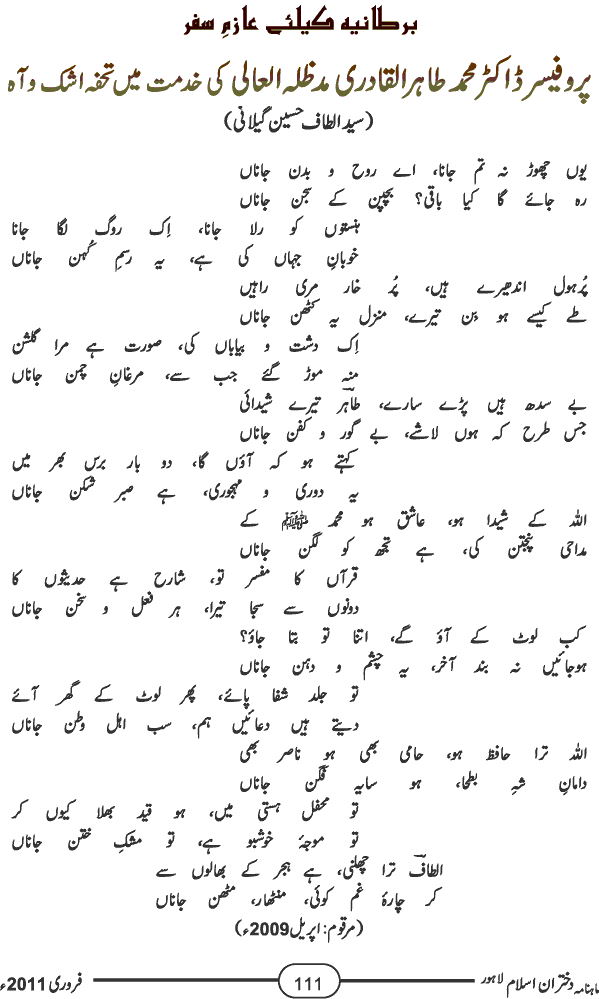 برطانیہ کیلئے عازمِ سفر
پروفیسر ڈاکٹر محمد طاہر القادری مدظلہ العالی کی خدمت میں تحفہ اشک و آہ
(سید الطاف حسین گیلانی)
یوں چھوڑ نہ تم جانا، اے روح و بدن جاناں
رہ جائے گا کیا باقی؟ بچپن کے سجن جاناں
ہنستوں کو رلا جانا، اِک روگ لگا جانا
خوبانِ جہاں کی ہے، یہ رسمِ کُہن جاناں
پُرہول اندھیرے ہیں، پُر خار مری راہیں
طے کیسے ہو بِن تیرے، منزل یہ کٹھن جاناں
اِک دشت و بیاباں کی، صورت ہے مرا گلشن
منہ موڑ گئے جب سے، مرغانِ چمن جاناں
بے سدھ ہیں پڑے سارے، طاہرؔ تیرے شیدائی
جس طرح کہ ہوں لاشے، بے گور و کفن جاناں
کہتے ہو کہ آؤں گا، دو بار برس بھر میں
یہ دوری و مہجوری، ہے صبر شکن جاناں
اللہ کے شیدا ہو، عاشق ہو محمد ﷺ کے
مداحی پنجتن کی، ہے تجھ کو لگن جاناں
قرآں کا مفسر تو، شارح ہے حدیثوں کا
دونوں سے سجا تیرا، ہر فعل و سخن جاناں
کب لوٹ کے آؤ گے، اتنا تو بتا جاؤ؟
ہوجائیں نہ بند آخر، یہ چشم و دہن جاناں
تو جلد شفا پائے، پھر لوٹ کے گھر آئے
دیتے ہیں دعائیں ہم، سب اہل وطن جاناں
اللہ ترا حافظ ہو، حامی بھی ہو ناصر بھی
دامانِ شہِ بطحا، ہو سایہ فگن جاناں
تو محفل ہستی میں، ہو قید بھلا کیوں کر
تو موجۂ خوشبو ہے، تو مشکِ ختن جاناں
الطافؔ ترا چھلنی، ہے ہجر کے بھالوں سے
کر چارۂ غم کوئی، منٹھار، مٹھن جاناں
(مرقوم: اپریل 2009ء)
ماہنامہ دختران اسلام لاہور 111 فروری 2011ء